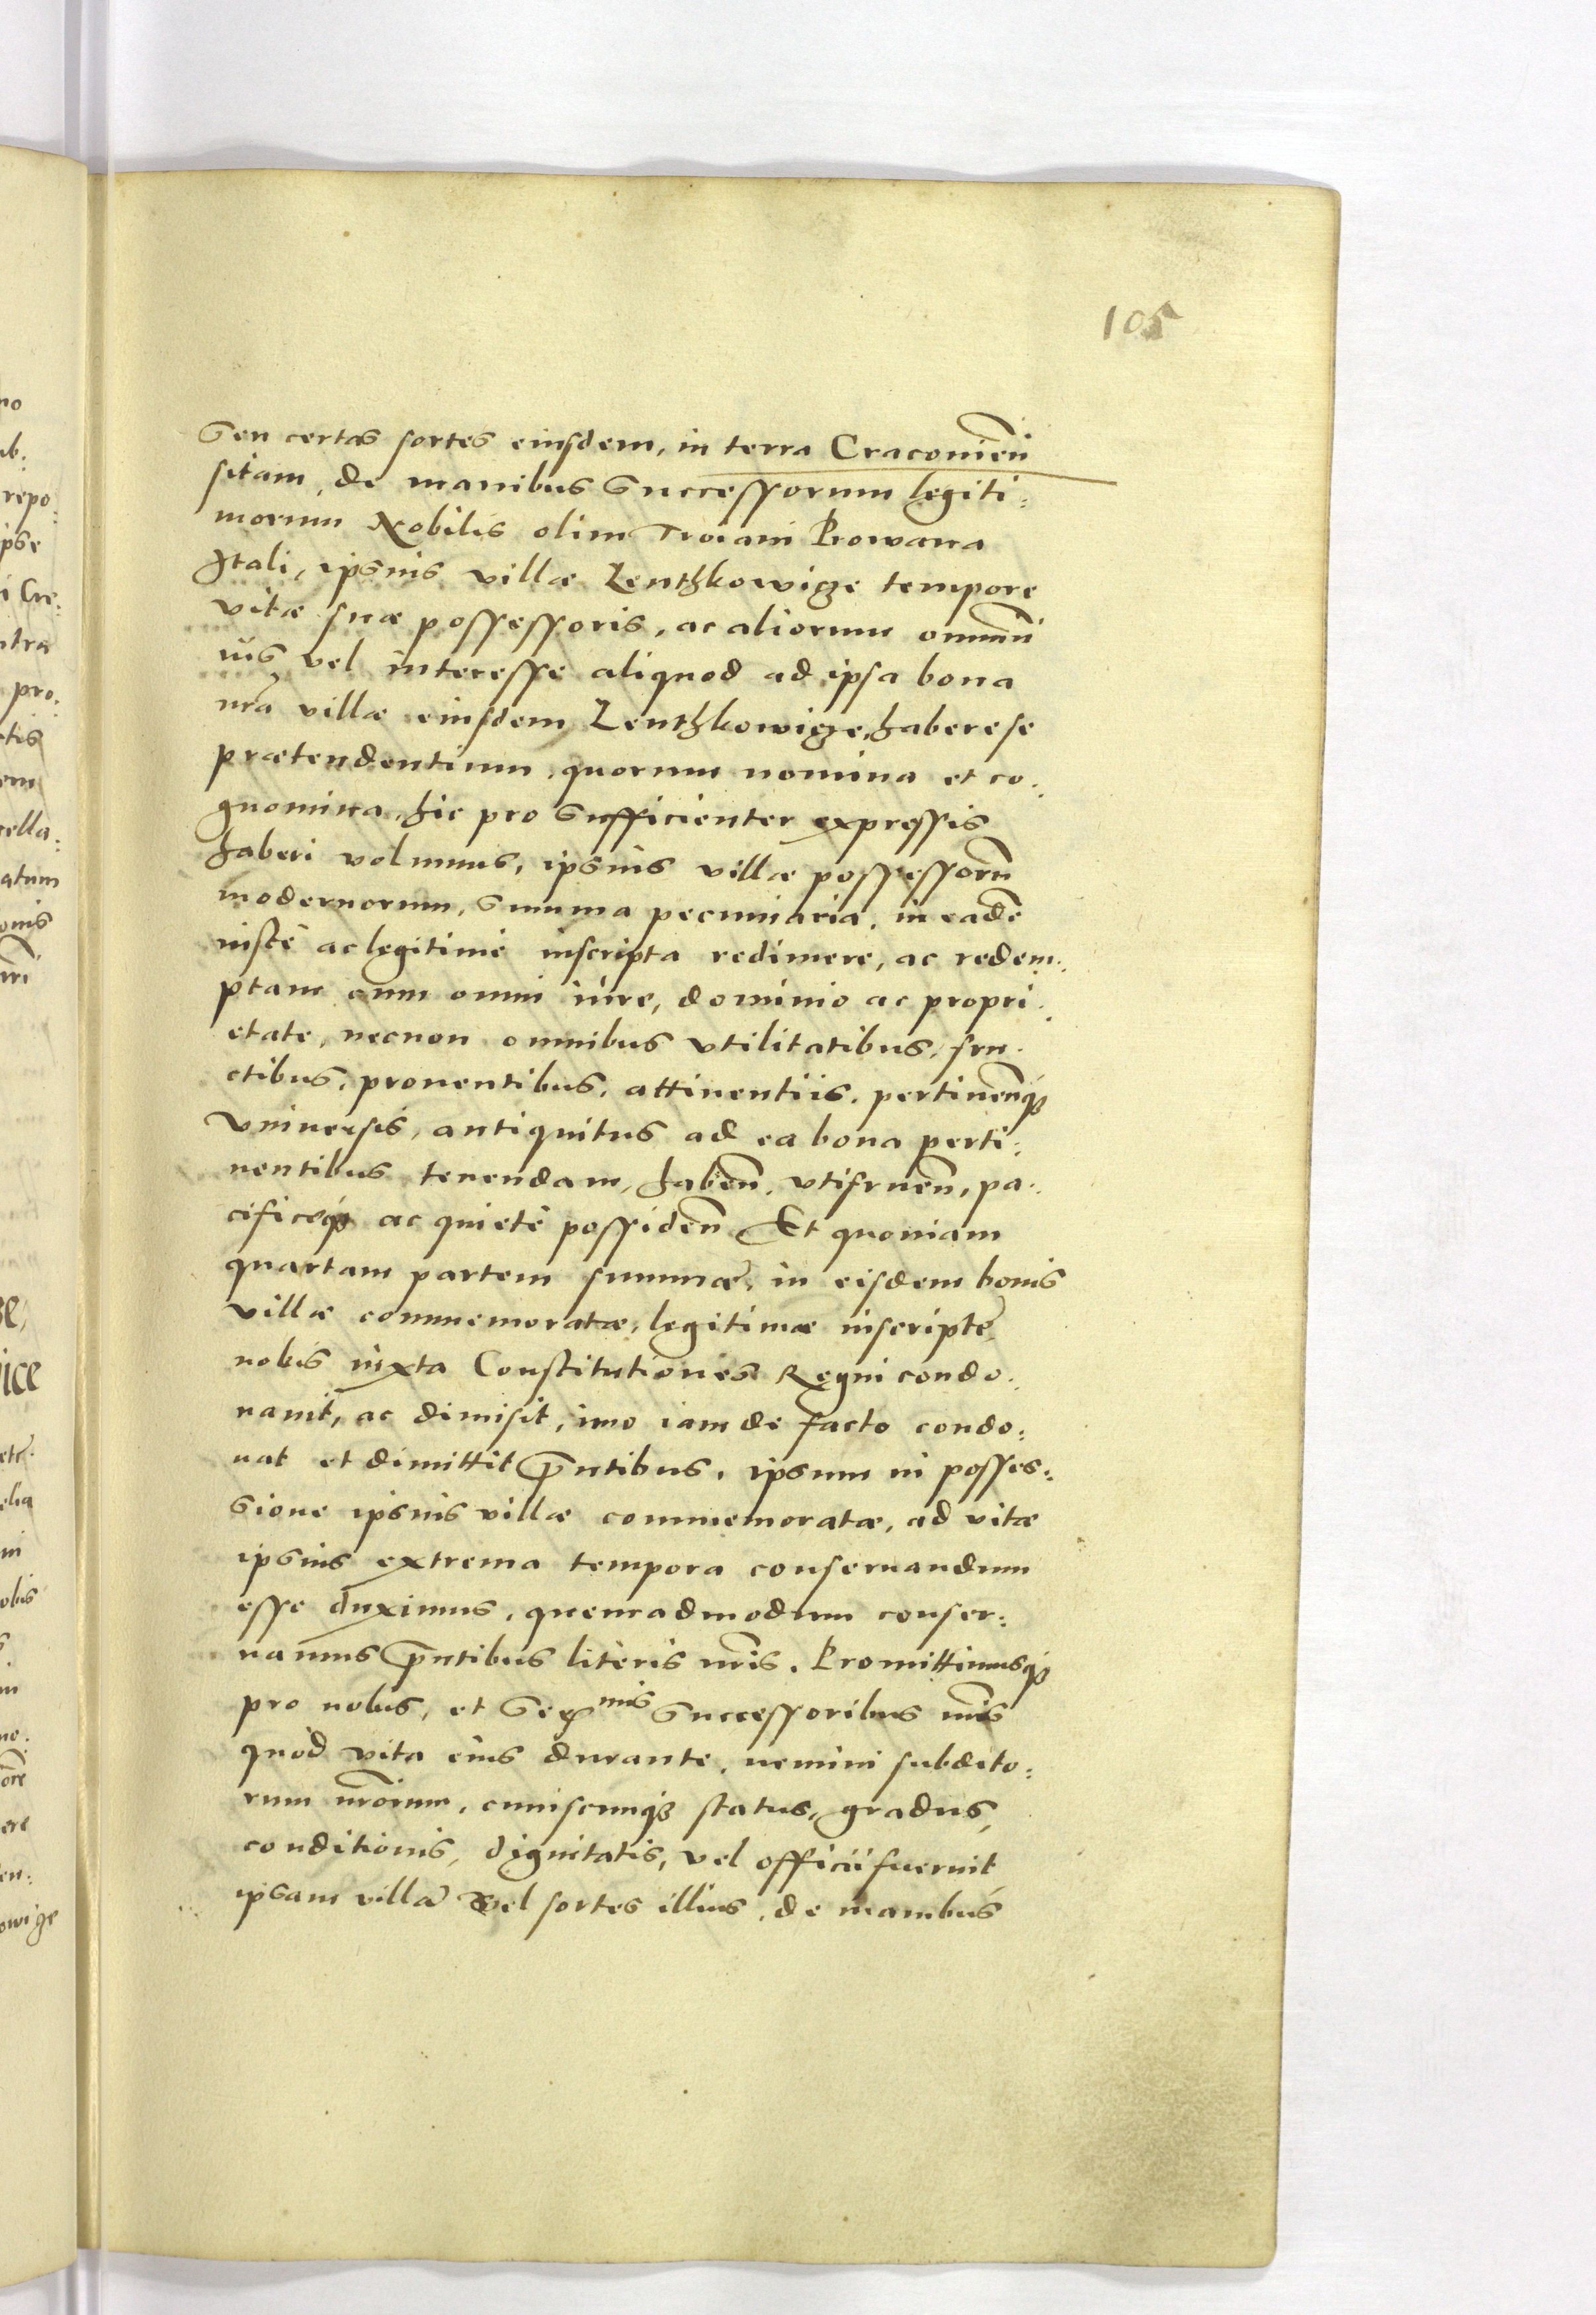 105
Seu certas sortes eiusdem, in terra Cracouieñ
sitam, de manibus Successorum legiti:
morum Nobilis olim Troiani Prowana
Itali, ipsius villæ Zenthkowicze tempore
vitæ suæ possessoris, ac aliorum omniũ
ius vel interesse aliquod ad ipsa bona
nr̃a villæ eiusdem Zenthkowicze, habere se
prætendentium, quorum nomina et co:
gnomina, hic pro Sufficienter expressis
haberi volumus, ipsius villæ possessorũ
modernorum, Summa pecuniaria, in eadẽ
iustè ac legitimè inscripta redimere, ac redem:
ptam cum omni iure, dominio ac propri:
etate, necnon omnibus vtilitatibus, fru:
ctibus, prouentibus, attinentiis, pertineñq꜄
Vniuersis, antiquitus ad ea bona perti:
nentibus tenendam, habeñ, vtifrueñ, pa:
cificeq꜄ ac quietè possideñ Et quoniam
quartam partem summæ, in eisdem bonis
villæ commemoratæ, legitimæ inscriptę
nobis iuxta Constitutiones Regni condo:
nauit, ac dimisit, imo iam de facto condo:
nat et dimittit p̃ntibus, ipsum in posses:
Sione ipsius villæ commemoratæ, ad vitæ
ipsius extrema tempora conseruandum
esse duximus, quemadmodum conser:
uamus p̃ntibus literis nr̃is. Promittimusq꜄
pro nobis, et Ser^mis Successoribus nr̃is
quòd vita eius durante, nemini subdito:
rum nr̃orum, cuiuscunq꜄ status, gradus,
conditionis, dignitatis, vel officii fuerint
ipsam villã vel sortes illius, de manibus